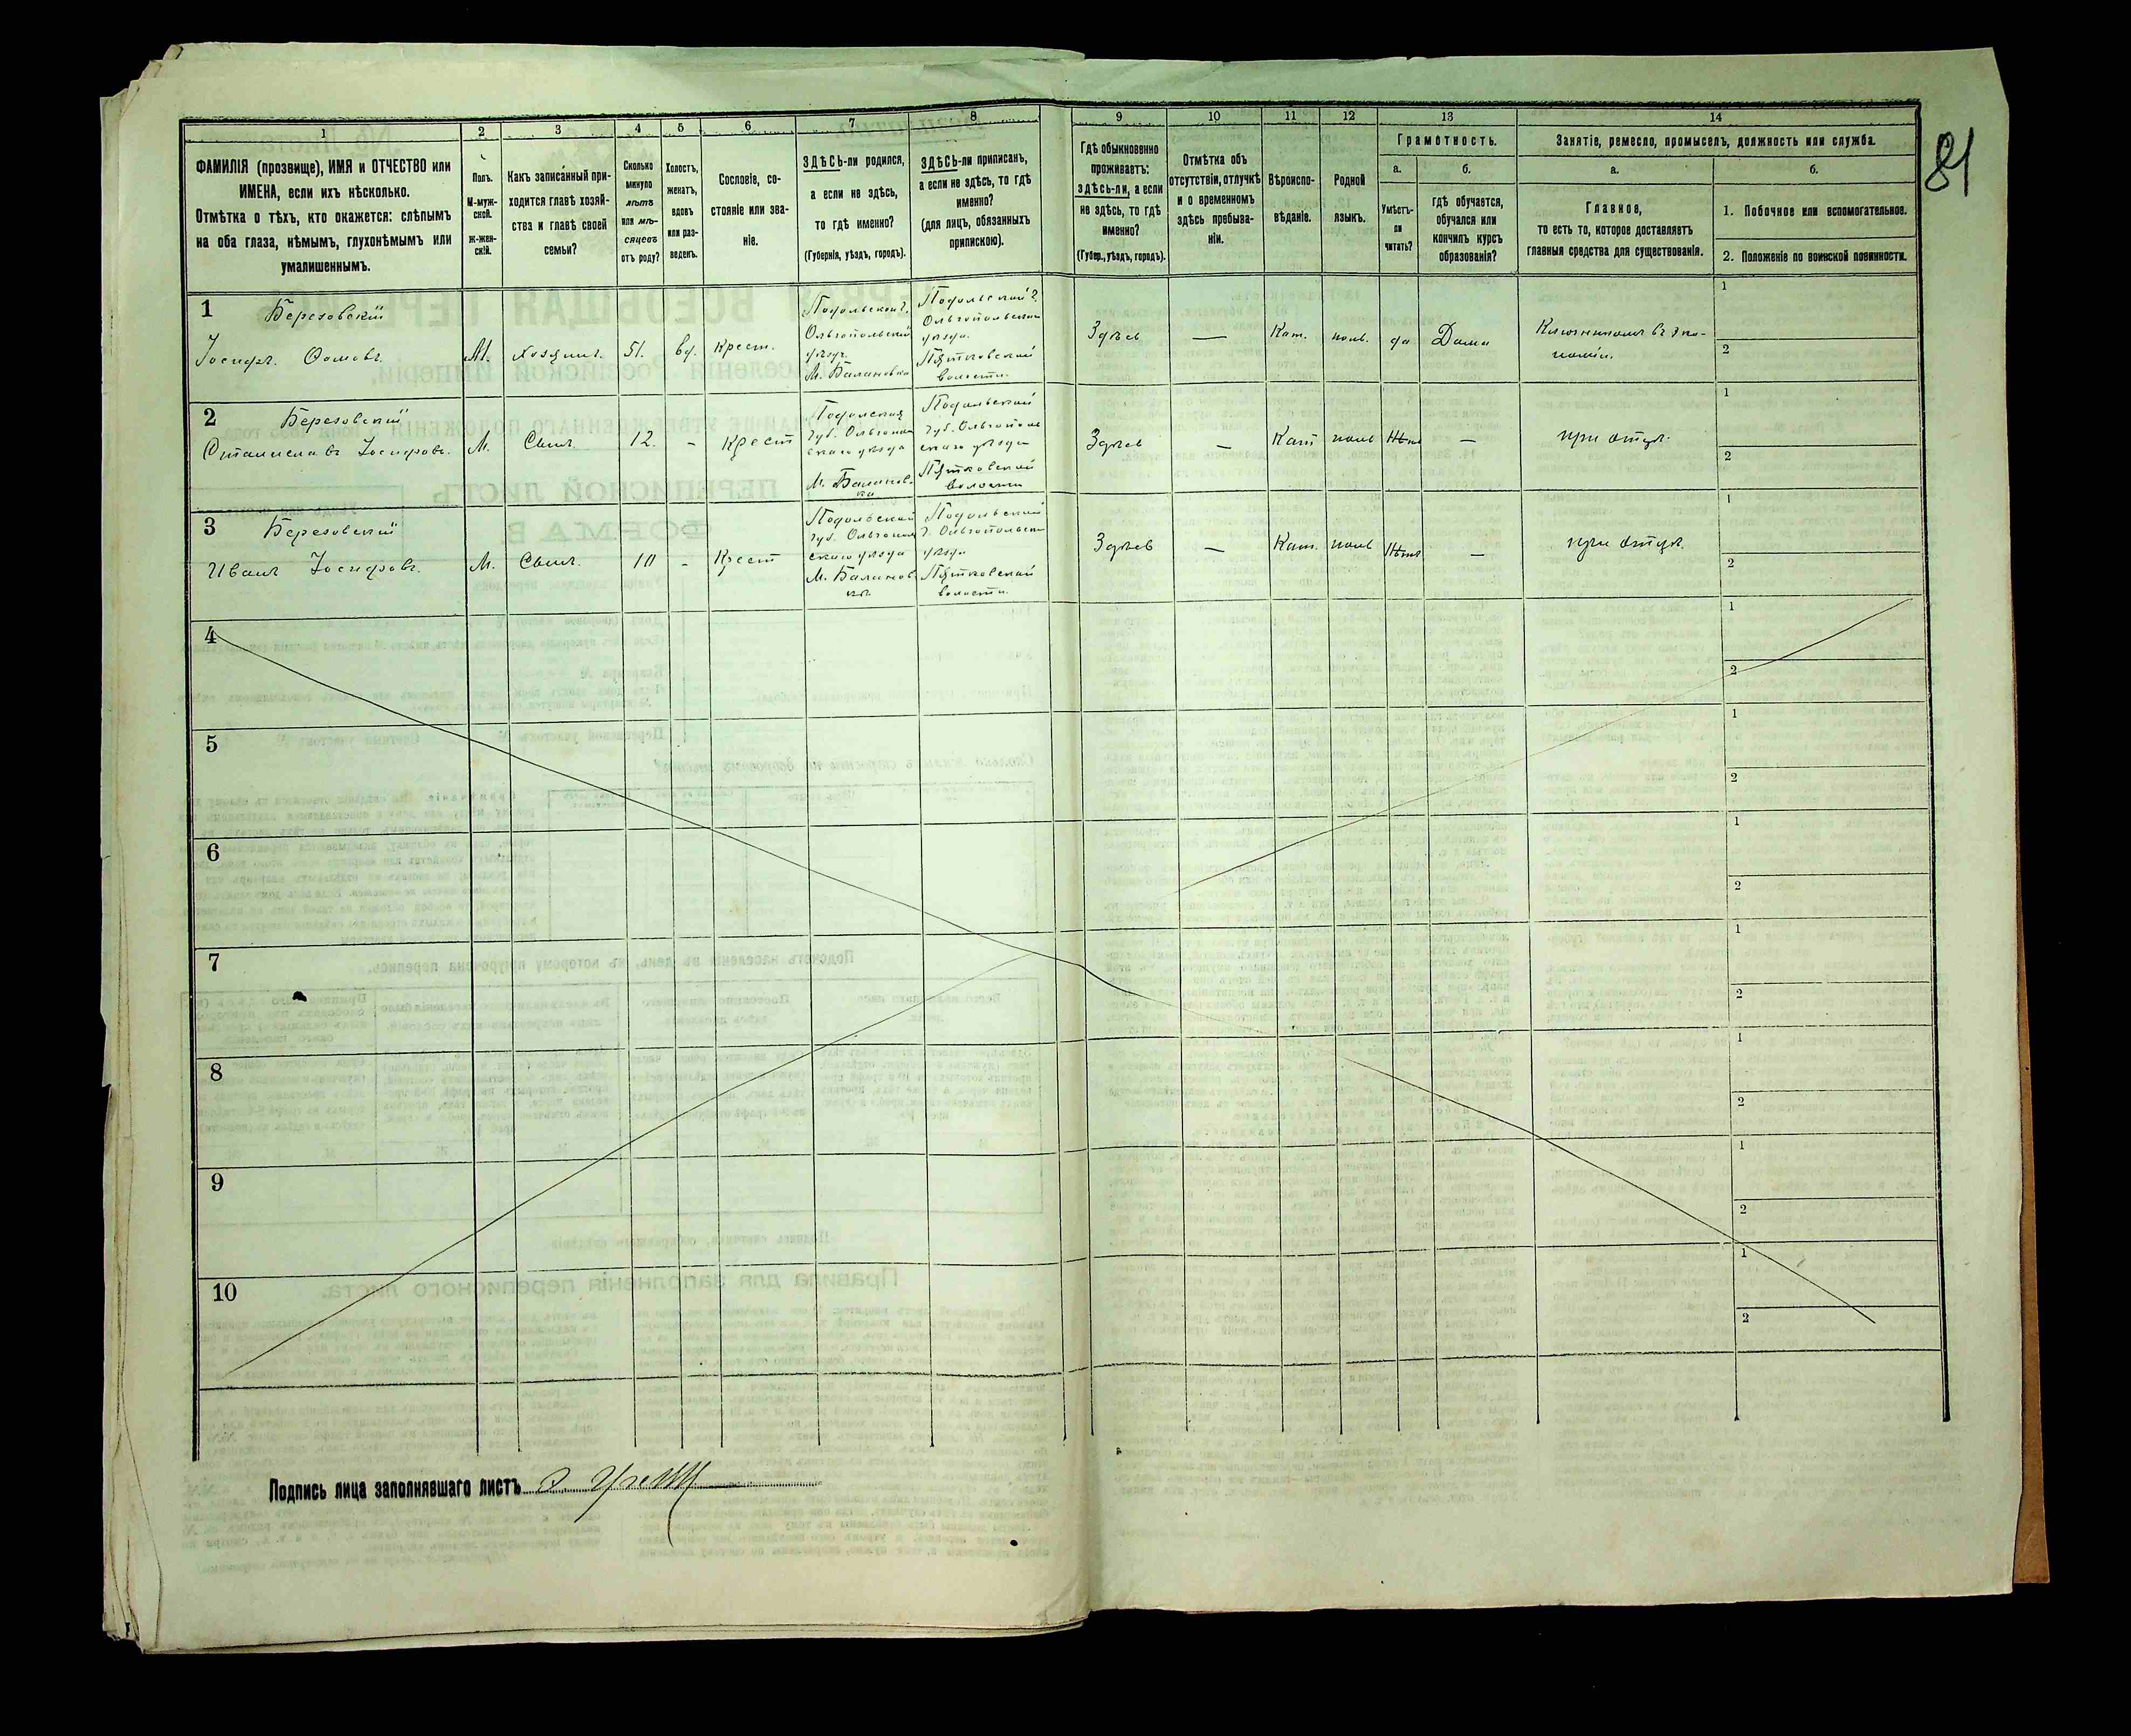 81
1
2
3
4
5
6
7
8
9
10
11
12
13
14
ФАМИЛІЯ (прозвище), ИМЯ и ОТЧЕСТВО или
ИМЕНА, если ихъ нѣсколько.
Отмѣтка о тѣхъ, кто окажется: слѣпымъ
на оба глаза, нѣмымъ, глухонѣмымъ или
умалишеннымъ.
Полъ.
М-муж-
ской.
Ж-жен-
скій.
Какъ записанный при-
ходится главѣ хозяй-
ства и главѣ своей
семьи?
Сколько
минуло
лѣтъ
или мѣ-
сяцевъ
отъ роду?
Холостъ,
женатъ,
вдовъ
или раз-
веденъ.
Сословіе, со-
стояніе или зва-
ніе.
ЗДѢСЬ-ли родился,
а если не здѣсь,
то гдѣ именно?
(Губернія, уѣздъ, городъ).
ЗДѢСЬ-ли приписанъ,
а если не здѣсь, то гдѣ
именно?
(для лицъ, обязанныхъ
припискою).
Гдѣ обыкновенно
проживаетъ:
здѣсь-ли, а если
не здѣсь, то гдѣ
именно?
(Губер., уѣздъ, городъ).
Отмѣтка объ
отсутствіи, отлучкѣ
и о временномъ
здѣсь пребыва-
ніи.
Вѣроиспо-
вѣданіе.
Родной
языкъ.
Грамотность.
а.
Умѣетъ-
ли
читать?
б.
гдѣ обучается,
обучался или
кончилъ курсъ
образованія?
Занятіе, ремесло, промыселъ, должность или служба.
а.
Главное,
то есть то, которое доставляетъ
главныя средства для существованія.
б.
1. Побочное или вспомогательное.
2. Положеніе по воинской повинности.
1
Березовскій
Іосифъ
М.
Хозяинъ.
51.
вд.
Крест.
Подольской г.
Ольгопольскій
уѣздъ.
М. Балановка
Подольской г.
Ольгопольскаго
уѣзда.
Пятковской
волости.
Здѣсь
—
Кат.
поль.
да
Дома
Ключникомъ въ эко-
номіи.
1
2
2
Березовскій
Станиславъ Іосифовъ.
М.
Сынъ.
12.
-
Крест
Подольская
губ. Ольгополь
скаго уѣзда
М. Баланов-
ка
Подольской
губ. Ольгополь
скаго уѣзда
Пятковской
волости
Здѣсь
—
Кат
поль
Нѣтъ
—
при отцѣ.
1
2
3
Березовскій
Иванъ Іосифовъ.
М.
Сынъ.
10
-
Крест
Подольской
губ. Ольгополь
скаго уѣзда
М. Баланов
кѣ.
Подольской
г. Ольгопольска
уѣзда
Пятковской
волости.
Здѣсь
—
Кат.
поль
Нѣтъ
—
при отцѣ.
1
2
4
1
2
5
1
2
6
1
2
7
1
2
8
1
2
9
1
2
10
1
2
Подпись лица заполнявшаго листъ